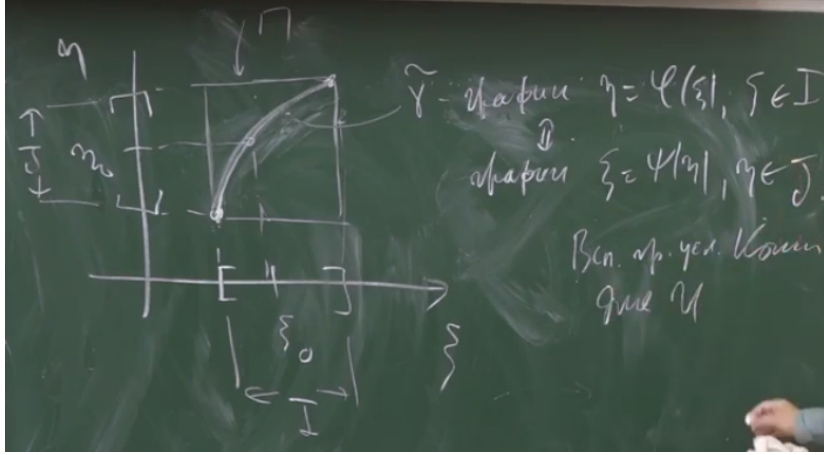 η
П
J
η₀
γ̃ - график η = φ(ξ), ξ ∈ I
⇕
график ξ = ψ(η), η ∈ J
Всп. пр. усл. Коши
для U
ξ₀
ξ
I